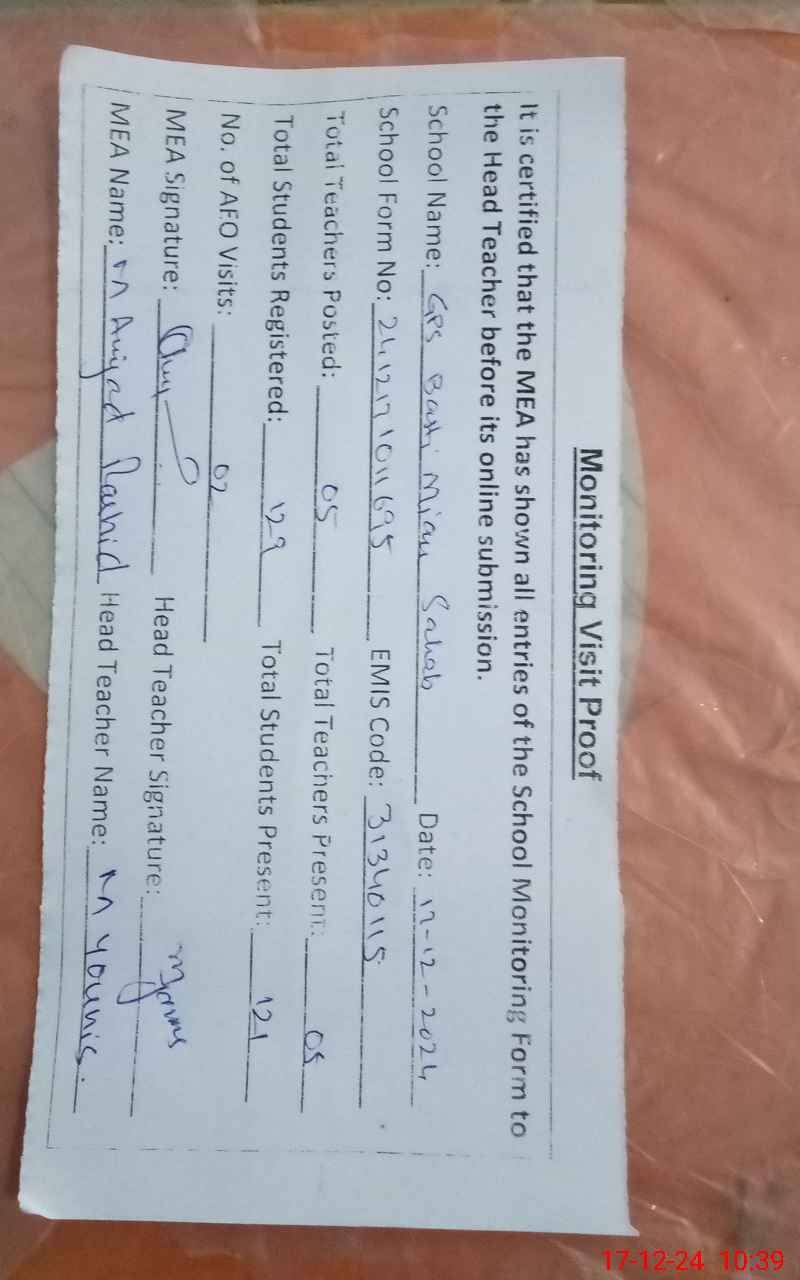 Monitoring Visit Proof
It is certified that the MEA has shown all entries of the School Monitoring Form to
the Head Teacher before its online submission.
School Name: GPS Basti Mian Sahab Date: 17-12-2024
School Form No: 2412171011695 EMIS Code: 31340115
Total Teachers Posted: 05 Total Teachers Present: 05
Total Students Registered: 129 Total Students Present: 121
No. of AEO Visits: 02
MEA Signature: Head Teacher Signature: Myounis
MEA Name: M Amjad Rashid Head Teacher Name: M Younis.
17-12-24 10:39